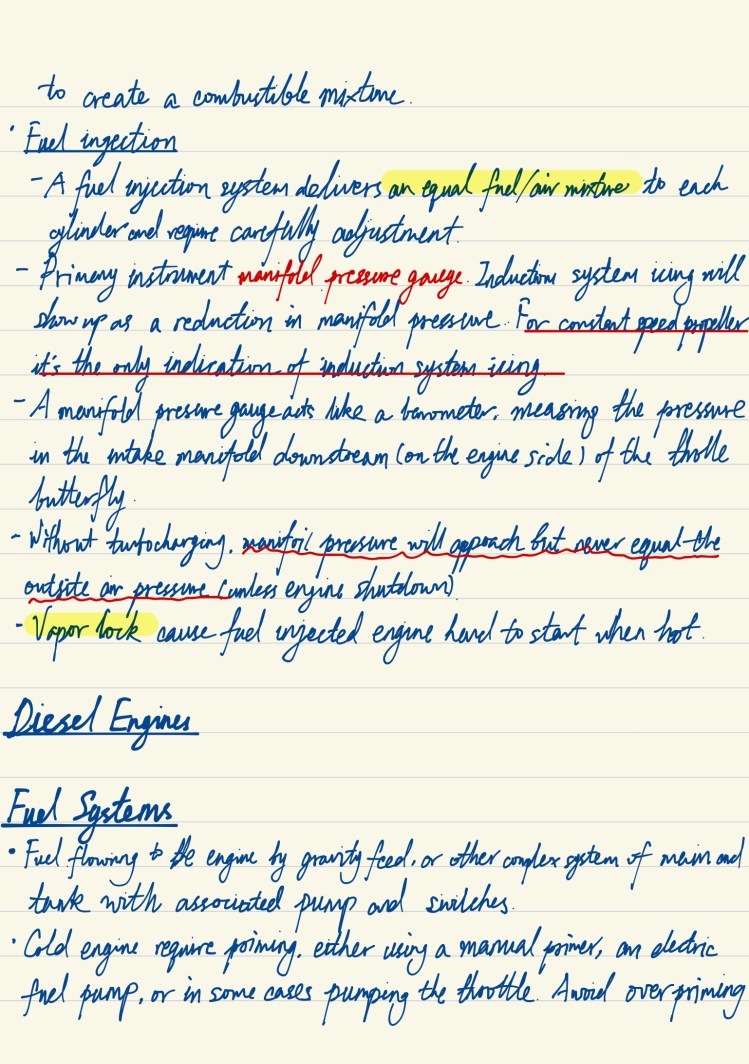 to create a combustible mixture.
· Fuel injection
- A fuel injection system delivers an equal fuel/air mixture to each
cylinder and require carefully adjustment.
- Primary instrument manifold pressure gauge. Induction system icing will
show up as a reduction in manifold pressure. For constant speed propeller
it's the only indication of induction system icing.
- A manifold pressure gauge acts like a barometer, measring the pressure
in the intake manifold downstream (on the engine side) of the throlle
butterfly.
- Without turbocharging, manifoil pressure will approach but never equal the
outsite air pressure (unless engine shutdown)
- Vapor lock cause fuel injected engine hard to start when hot.
Diesel Engines
Fuel Systems
· Fuel flowning to the engine by gravity feed, or other complex system of main and
tank with associated pump and switches.
· Cold engine require priming, either using a manual primer, an electric
fuel pump, or in some cases pumping the throttle. Avoid over priming